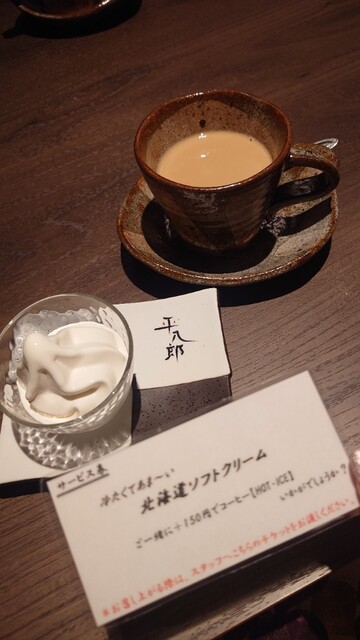 平八郎
サービス券
冷たくてあま〜い
北海道ソフトクリーム
ご一緒に＋150円でコーヒー【HOT・ICE】
いかがでしょうか？
※お召し上がる際は、スタッフへこちらのチケットをお渡しください。